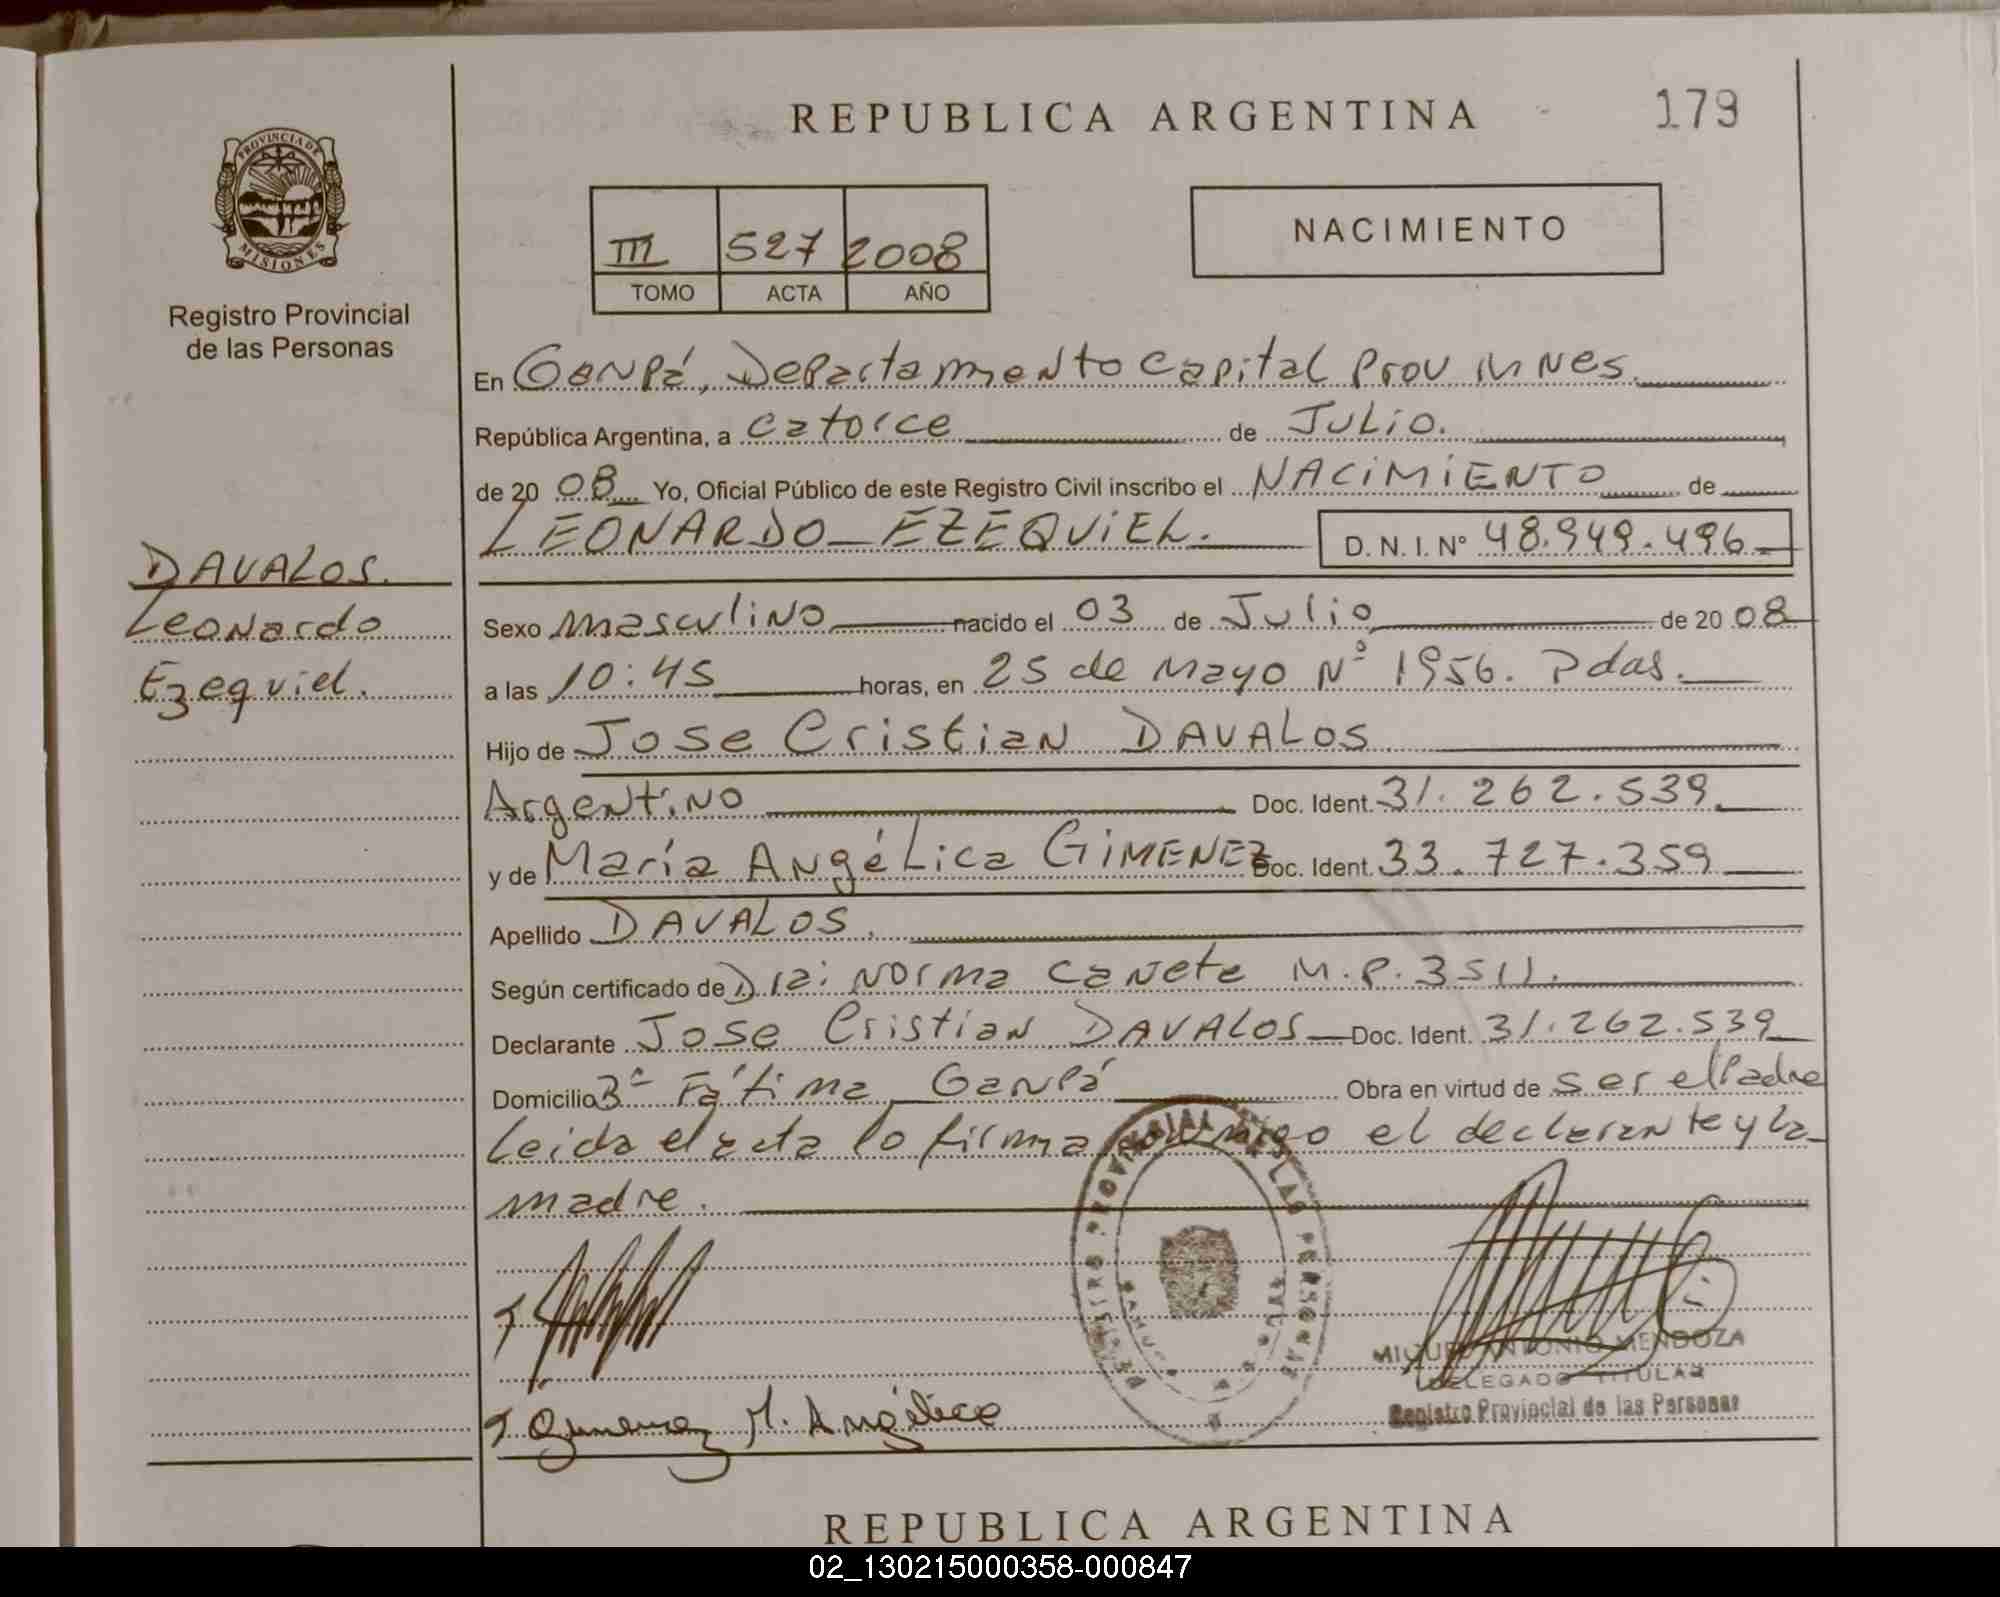 REPUBLICA ARGENTINA
179
PROVINCIA DE
MISIONES
Registro Provincial
de las Personas
III 527 2008
TOMO ACTA AÑO
NACIMIENTO
En Ganpá, Departamento Capital Prov Mnes.
República Argentina, a catorce de Julio.
de 20 08 Yo, Oficial Público de este Registro Civil inscribo el NACIMIENTO de
LEONARDO EZEQUIEL. D. N. I. Nº 48.949.496
DAVALOS.
Leonardo
Ezequiel.
Sexo masculino nacido el 03 de Julio de 20 08
a las 10:45 horas, en 25 de Mayo Nº 1956. Pdas.
Hijo de Jose Cristian DAVALOS
Argentino Doc. Ident. 31.262.539
y de María Angélica GIMENEZ Doc. Ident. 33.727.359
Apellido DAVALOS.
Según certificado de Dra: Norma Canete M.P. 3511.
Declarante Jose Cristian DAVALOS Doc. Ident. 31.262.539
Domicilio Bº Fátima Ganpá Obra en virtud de ser el Padre
Leida el acta lo firma conmigo el declarante y la
madre.
REGISTRO PROVINCIAL DE LAS PERSONAS
MIGUEL ANTONIO MENDOZA
DELEGADO TITULAR
Registro Provincial de las Personas
Gimenez M. Angélica
REPUBLICA ARGENTINA
02_130215000358-000847